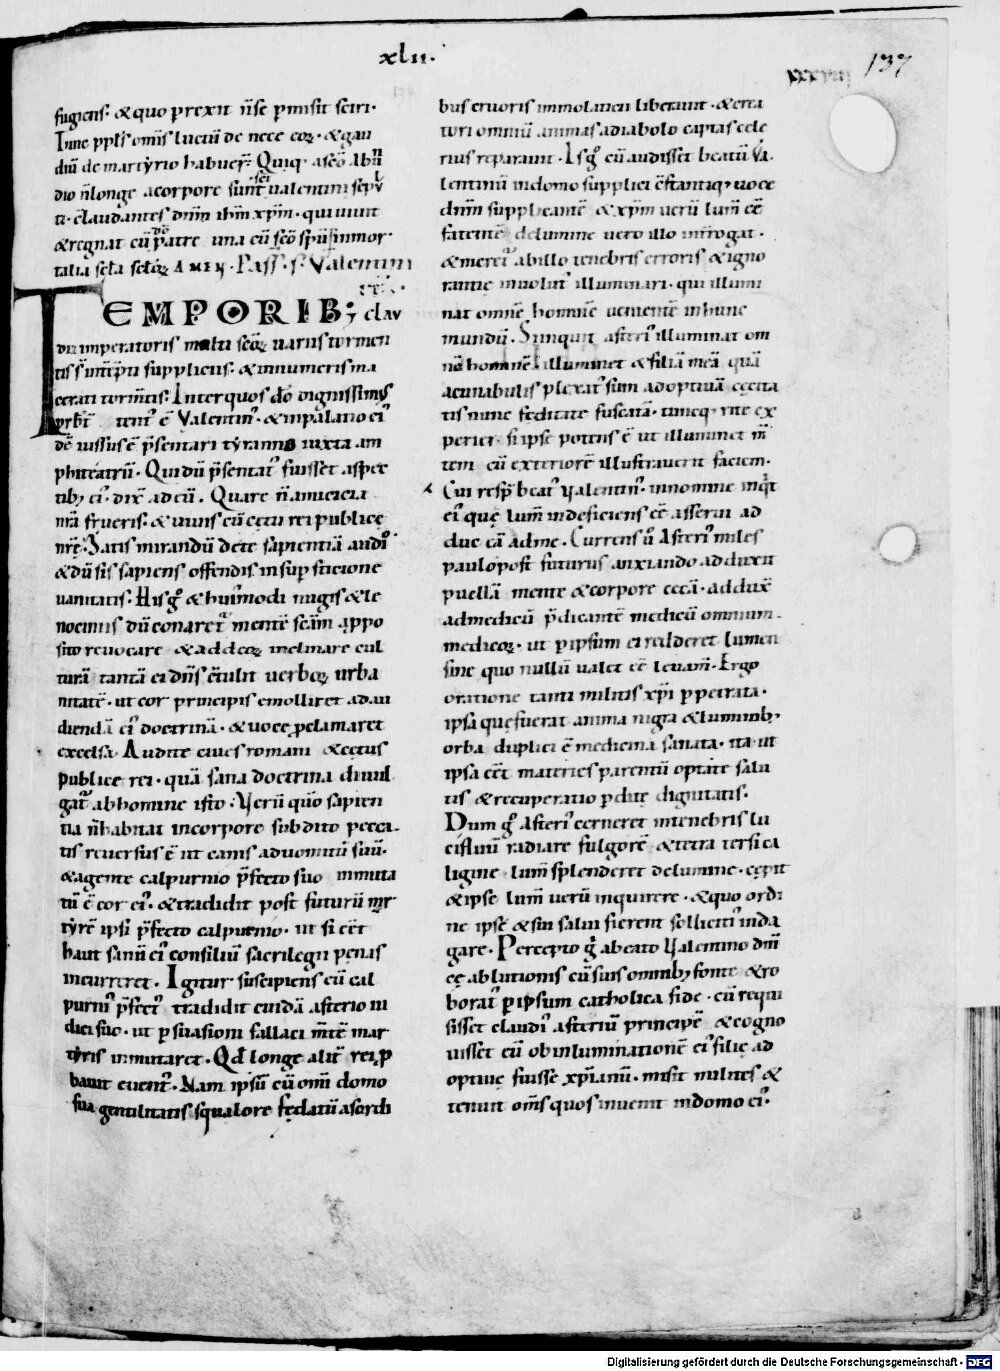 xlii.
137
fugiens. & quo p̄rexit n̄se p̄misit sciri.
Tunc ppl̓s om̄is luctū de nece eoꝝ. & gau
diū de martyrio habuer̄. Quiq. a sc̄o Abū
dio n̄ longe a corpore sc̄i ualentini sepul
ti. c̄laudantes dn̄m ih̄m xp̄m. qui uiuit
& regnat cū dō patre una cū sc̄o sp̄u ī inmor
talia sc̄la sc̄loꝝ AMEN. Pass̄. S. Valentini
TEMPORIB; clau
dii imperatoris multi sc̄oꝝ uariis tormen
tis s̄ int̄ēpti suppliciis. & innumeris ma
cerati torm̄tis. Inter quos dō dignissim̄s
prb̄r tent̓ ē Valentin̓. & in palatio ei̓
dē iussus ē p̄sentari tyranno iuxta am
phiteatrū. Qui dū p̄sentat̓ fuisset aspec
tib; ei̓. dix̄ ad eū. Quare n̄ amicicia
nr̄a frueris. & uiuis cū cetu rei publicę
nr̄ę. Satis mirandū de te sapientiā audi̓.
& dū sis sapiens offendis in sup̄sticione
uanitatis. His g̊ & hui̓modi nugis & le
nociniis dū conaret̓ mentē sc̄am appo
sito reuocare & ad deoꝝ inclinare cul
turā tantā ei dn̄s c̄tulit uerboꝝ urba
nitatē. ut cor principis emolliret ad au
diendā ei̓ doctrinā. & uoce p̄clamaret
excelsa. Audite ciues romani & cetus
publice rei. quā sana doctrina diuul
gat̓ ab homine isto. Verū quō sapien
tia n̄ habitat in corpore subdito pecca.
tis reuersus ē ut canis ad uomitū suū.
& agente calpurnio p̄fecto suo inmuta
tū ē cor ei̓. & tradidit post futurū mr̄
tyrē ipsi p̄fecto calpurnio. ut si cēt
haut sanū ei consiliū sacrilegii penas
incurreret. Igitur suscipiens eū cal
purni̓ p̄fect̓ tradidit cuidā asterio iu
dici suo. ut p̄suasioni fallaci m̄tē mar
tyris inmutaret. Qd̄ longe alit̄ rei p̄
bauit euent̓. Nam ipsū cū om̄i domo
sua gentilitatis squalore fędatū a sordi
bus erroris immolaticii liberauit. & crea
tori omniū animas a diabolo captas cele
rius reparauit. Is g̊ cū audisset beatū Va
lentinū in domo supplici c̄stantiq; uoce
dn̄m supplicantē & xp̄m uerū lum̄ eē
fatentē de lumine uero illo int̄rogat.
& meret̓ ab illo tenebris erroris & igno
rantię inuolut̓ illuminari. qui illumi
nat omnē hominē uenientē in hunc
mundū. Si inquit asteri̓ illuminat om
nē hominē illuminet & filiā meā quā
a cunabulis plexat̓ sum adoptiuā cęcita
tis nunc fęditate fuscatā. tuncq; rite ex
periet̓ si ipse potens ē ut illuminet m̄
tem cū exteriorē illustrauerit faciem.
Cui resp̄ beat̓ Valentin̓. in nomine inqt
ei̓ quę lum̄ indeficiens eē asserui ad
duc eā ad me. Currens ū Asteri̓ miles
paulo post futurus anxiando adduxit
puellā mente & corpore cecā. adduxē
ad medicū p̄dicantē medicū omnium
medicoꝝ. ut p̄ ipsum ei redderet lumen
sine quo nullū ualet eē leuam̄. Ergo
oratione tanti militis xp̄i p̄petrata.
ipsa quę fuerat anima nigra & luminib;
orba duplici ē medicina sanata. ita ut
ipsa cēt materies parentū optate salu
tis & recuperatio p̄dite dignitatis.
Dum g̊ Asteri̓ cerneret in tenebris lu
cifluū radiare fulgorē & tetra tersi ca
ligine lum̄ splenderet de lumine. cępit
& ipse lum̄ uerū inquirere. & quo ordi
ne ipse & sui salui fierent sollicit̓ inda
gare. Percepto g̊ a beato Valentino dn̄i
cę ablutionis cū suis omnib; fonte & ro
borat̓ p̄ ipsum catholica fide. cū requi
sisset claudi̓ asteriū principē & cogno
uisset eū ob inluminationē ei̓ filię ad
optiuę fuisse xp̄ianū. misit milites &
tenuit om̄s quos inuenit in domo ei̓.
Digitalisierung gefördert durch die Deutsche Forschungsgemeinschaft - DFG